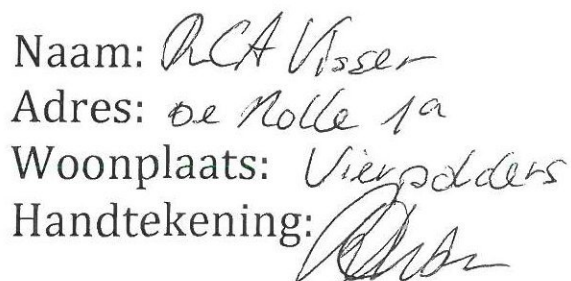 Naam: RCA Visser
Adres: De Rolle 1a
Woonplaats: Vierpolders
Handtekening: